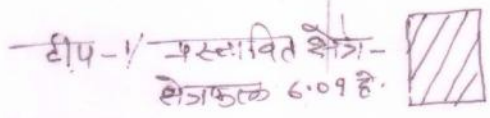 टीप-1/ प्रस्तावित क्षेत्र-
क्षेत्रफल 6.09 है.